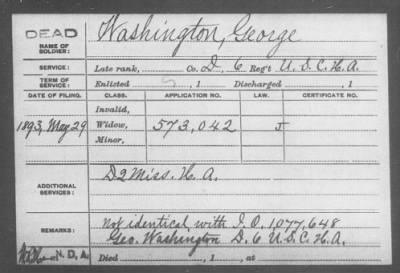 DEAD
NAME OF SOLDIER: Washington, George
SERVICE: Late rank, Co. D, 6 Reg't U. S. C. H. A.
TERM OF SERVICE: Enlisted , 1 Discharged , 1
DATE OF FILING. CLASS. APPLICATION NO. LAW. CERTIFICATE NO.
Invalid,
1893, May 29 Widow, 573,042 J
Minor,
ADDITIONAL SERVICES: D2 Miss. H. A.
REMARKS: Not identical with I. O. 1077,648
Geo. Washington D. 6 U. S. C. H. A.
N. D. A. Died , 1 , at